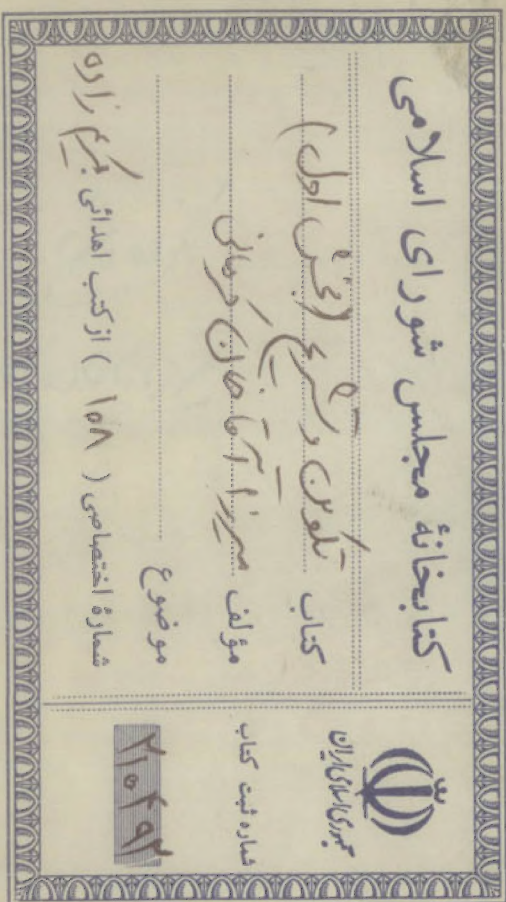 کتابخانهٔ مجلس شورای اسلامی
کتاب تکوین و تشریع (بخش اول)
مؤلف میرزا آقا خان کرمانی
موضوع
شمارهٔ اختصاصی ( ۱۵۸ ) از کتب اهدائی
جمهوری اسلامی ایران
شماره ثبت کتاب
۲۱۰۴۹۲